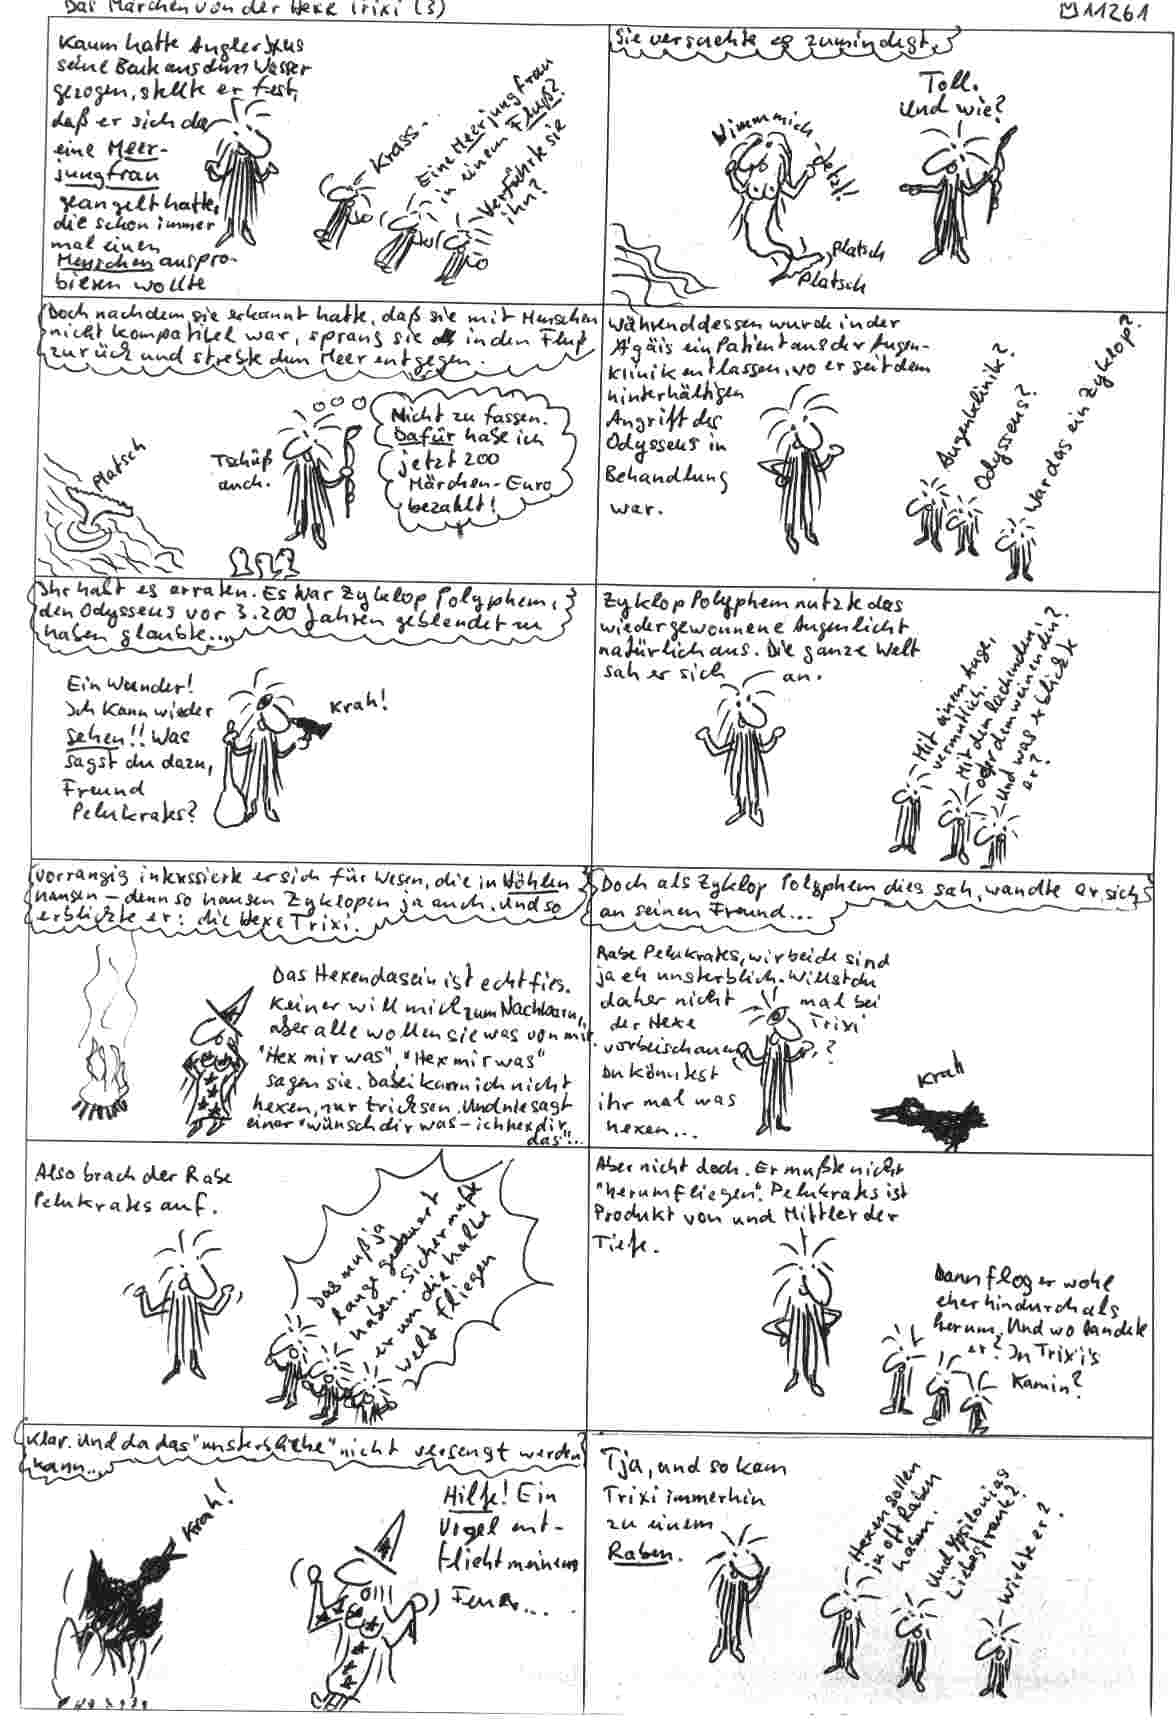 Das Märchen von der Hexe Trixi (3)
11261
Kaum hatte Angler Jxus
seine Beute aus dem Wasser
gezogen, stellte er fest,
daß er sich da
eine Meer-
jungfrau
geangelt hatte,
die schon immer
mal einen
Menschen auspro-
bieren wollte
Krass.
Eine Meerjungfrau
in einem Fluß?
Verführte sie
ihn?
Sie versuchte es zumindest.
Nimm mich
jetzt!
Platsch
Platsch
Toll.
Und wie?
Doch nachdem sie erkannt hatte, daß sie mit Menschen
nicht kompatibel war, sprang sie in den Fluß
zurück und strebte dem Meer entgegen.
Platsch
Tschüß
auch.
Nicht zu fassen.
Dafür habe ich
jetzt 200
Märchen-Euro
bezahlt!
Währenddessen wurde in der
Ägäis ein Patient aus der Augen-
klinik entlassen, wo er seit dem
hinterhältigen
Angriff des
Odysseus in
Behandlung
war.
Augenklinik?
Odysseus?
War das ein Zyklop?
Ihr habt es erraten. Es war Zyklop Polyphem,
den Odysseus vor 3.200 Jahren geblendet zu
haben glaubte...
Ein Wunder!
Ich kann wieder
sehen!! Was
sagst du dazu,
Freund
Pelukrates?
Krah!
Zyklop Polyphem nutzte das
wiedergewonnene Augenlicht
natürlich aus. Die ganze Welt
sah er sich an.
Mit einem Auge,
vermutlich.
Mit dem lachenden,
oder dem weinenden?
Und was erblickte
er?
Vorrangig interessierte er sich für Wesen, die in Höhlen
hausen – denn so hausen Zyklopen ja auch. Und so
erblickte er: die Hexe Trixi.
Das Hexendasein ist echt fies.
Keiner will mich zum Nachbarn,
aber alle wollen sie was von mir.
"Hex mir was", "Hex mir was"
sagen sie. Dabei kann ich nicht
hexen, nur tricksen. Und nie sagt
einer "wünsch dir was – ich hex dir
das"...
Doch als Zyklop Polyphem dies sah, wandte er sich
an seinen Freund...
Rabe Pelukrates, wir beide sind
ja eh unsterblich. Willst du
daher nicht mal bei
der Hexe Trixi
vorbeischauen?
Du könntest
ihr mal was
hexen...
Krah
Also brach der Rabe
Pelukrates auf.
Das muß ja
lange gedauert
haben. Sicher mußte
er um die halbe
Welt fliegen
Aber nicht doch. Er mußte nicht
"herumfliegen". Pelukrates ist
Produkt von und Mittler der
Tiefe.
Dann flog er wohl
eher hindurch als
herum. Und wo landete
er? In Trixi's
Kamin?
Klar. Und da das "unsterbliche" nicht versengt werden
kann...
Krah!
Hilfe! Ein
Vogel ent-
flieht meinem
Feuer...
Tja, und so kam
Trixi immerhin
zu einem
Raben.
Hexen sollen
ja oft Raben
haben.
Und Ypsilonias
Liebestrank?
Wirkte er?